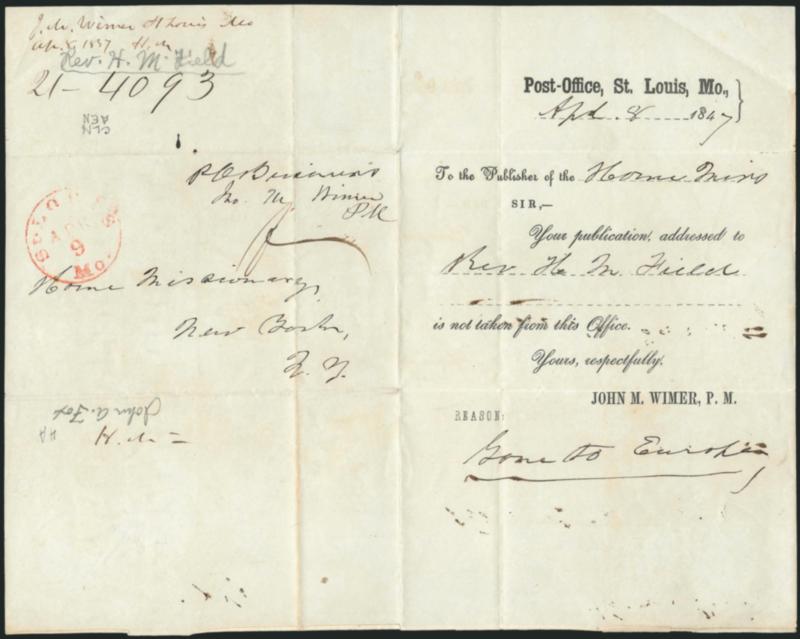 J. M. Wimer St Louis Mo
Apr. 8 1847 H. M.
Rev. H. M. Field
21- 4093
CLN
AEN
P O Business
Jno. M. Wimer
PM
ST. LOUIS
APR
9
Mo.
Home Missionary,
New York,
N. Y.
John A. Fox
H. M. -
Post-Office, St. Louis, Mo.,
Apl. 8 1847
To the Publisher of the Home Miss
SIR,—
Your publication, addressed to
Rev H. M. Field
is not taken from this Office.
Yours, respectfully,
JOHN M. WIMER, P. M.
REASON:
Gone to Europe